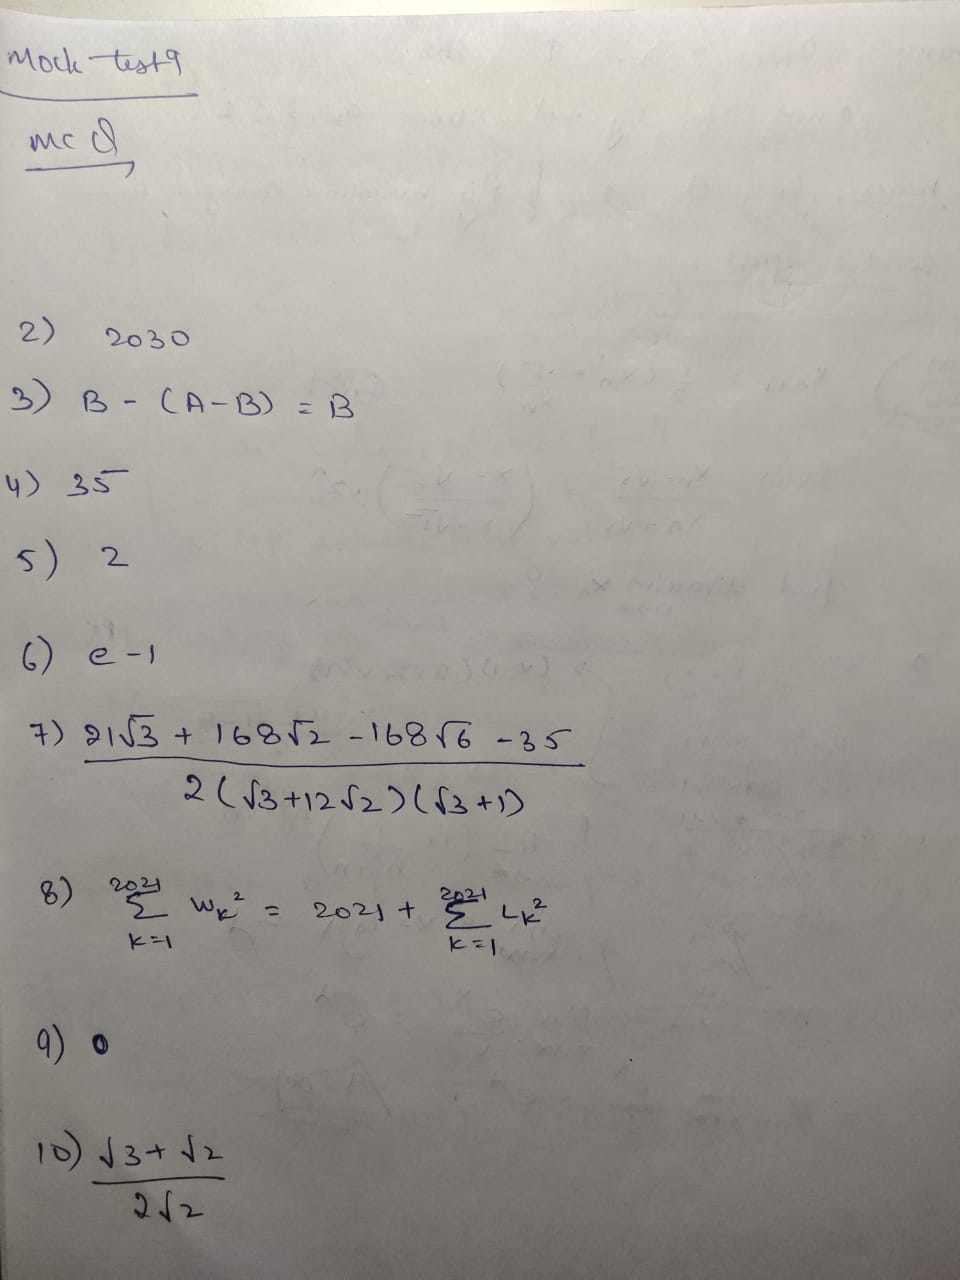 Mock test 9
mcQ
2) 2030
3) B - (A-B) = B
4) 35
5) 2
6) e-1
7) 21√3 + 168√2 - 168√6 - 35
2(√3+12√2)(√3+1)
8) 2021 Σ k=1 Wk² = 2021 + 2021 Σ k=1 Lk²
9) 0
10) √3+√2
2√2